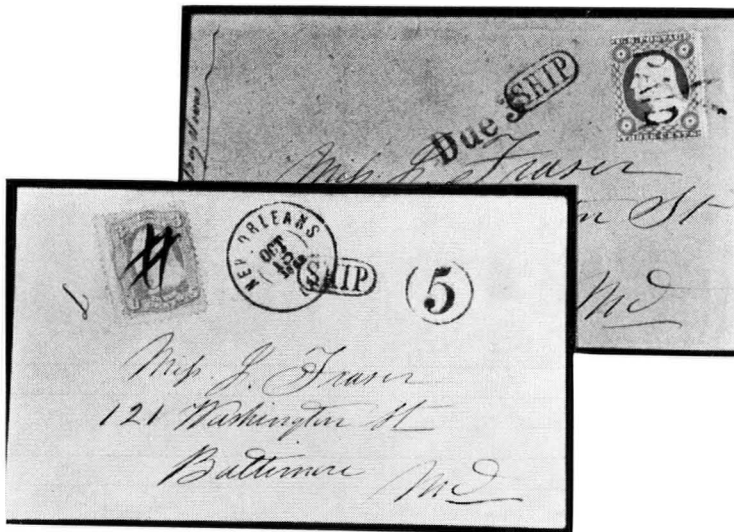 Due 3 SHIP
PAID
Miss J. Fraser
St
Md
NEW ORLEANS
OCT
SHIP
5
Miss J. Fraser
121 Washington St
Baltimore
Md